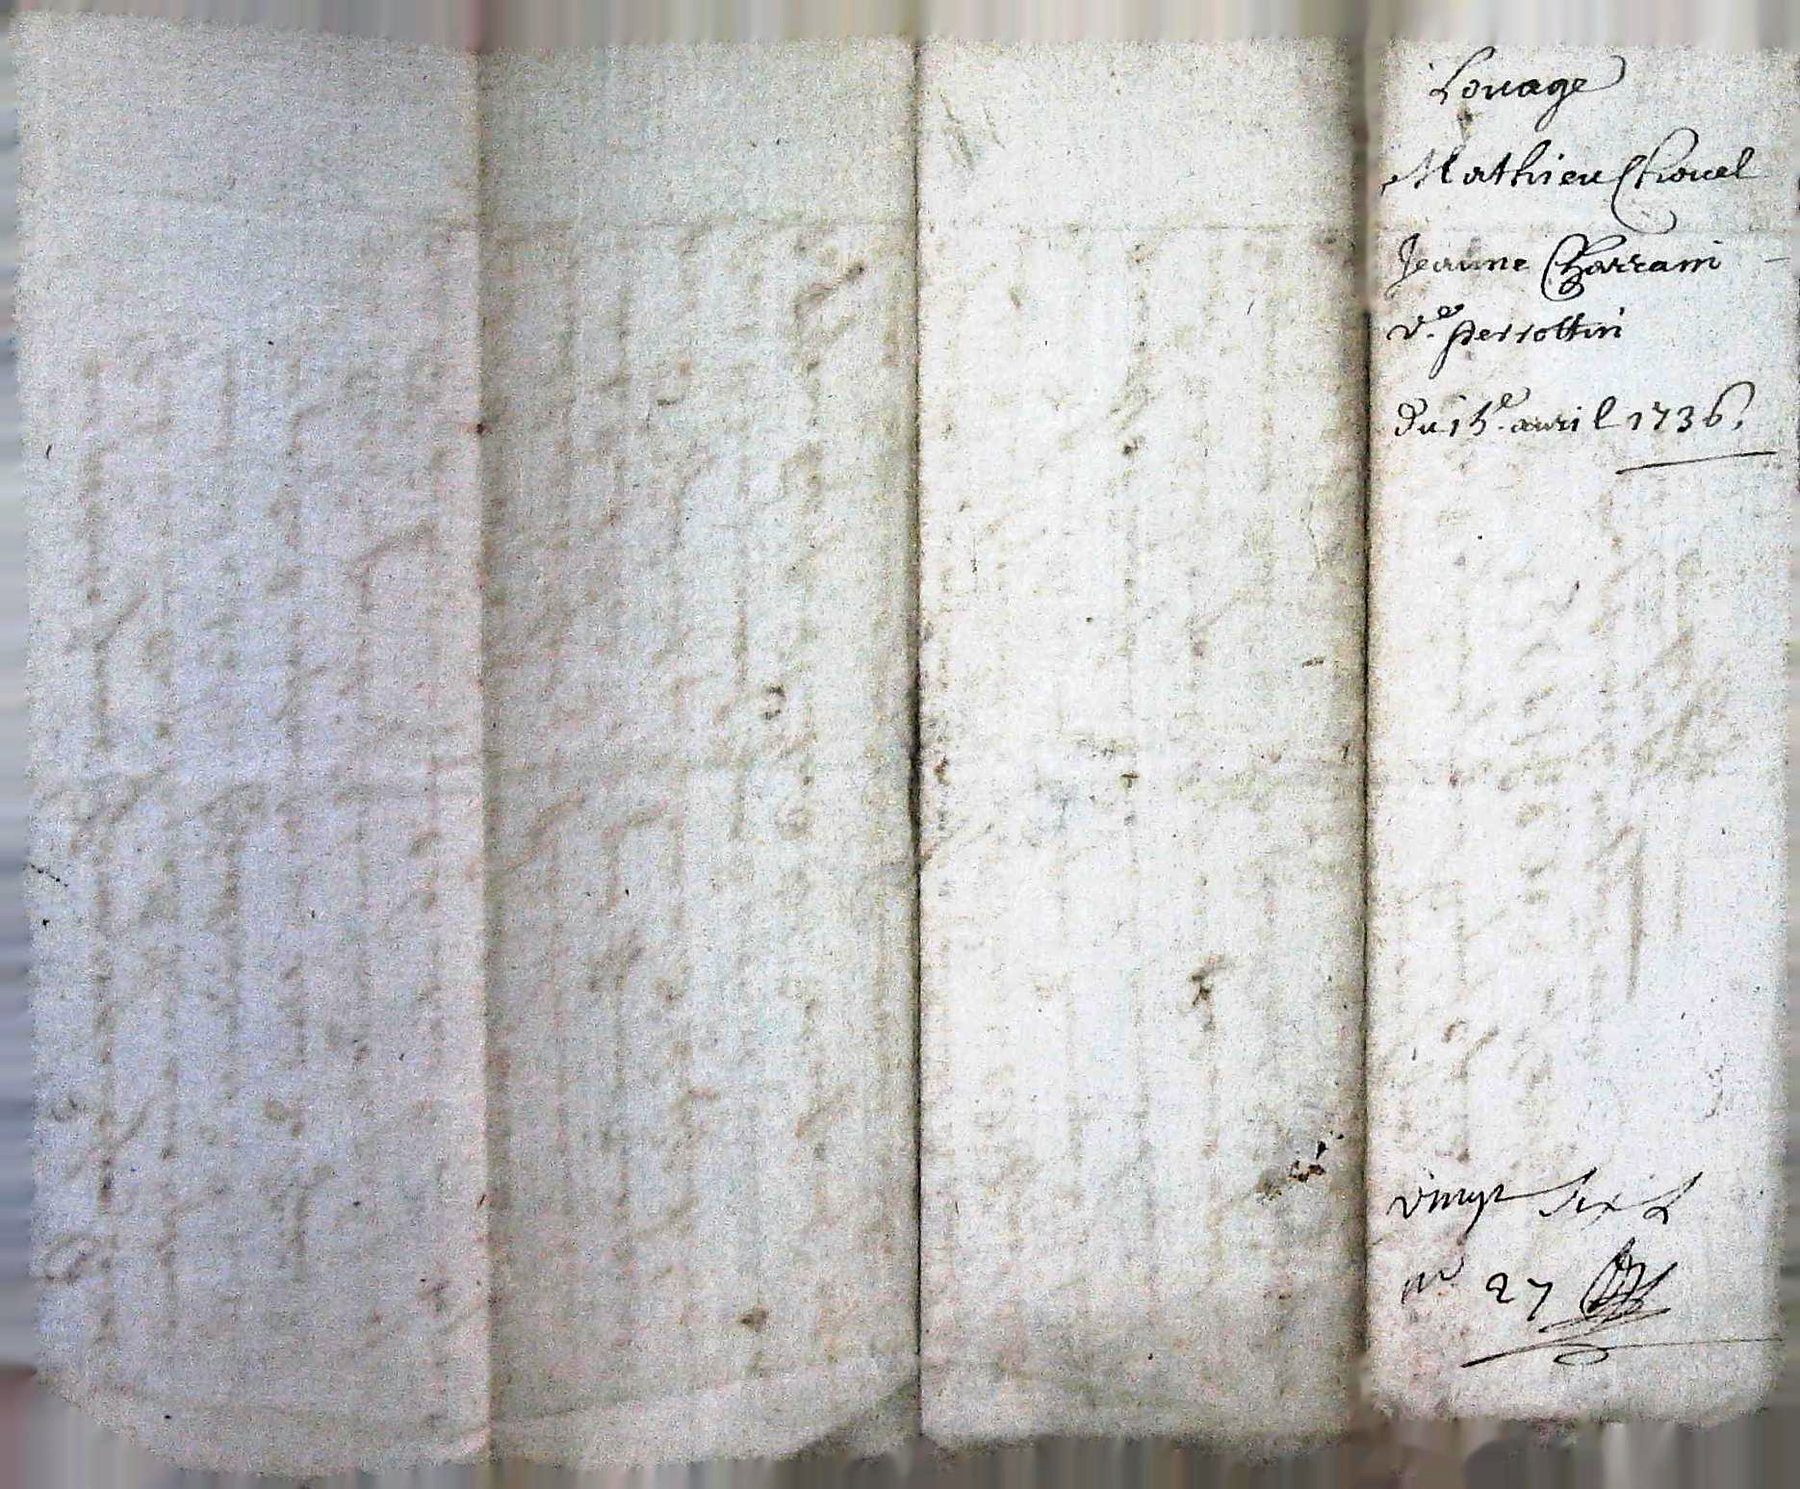 Louage
Mathieu Chouel
Jeanne Charrain
v.e perrottin
Du 15.e auril 1736.
vingt six L
n.o 27